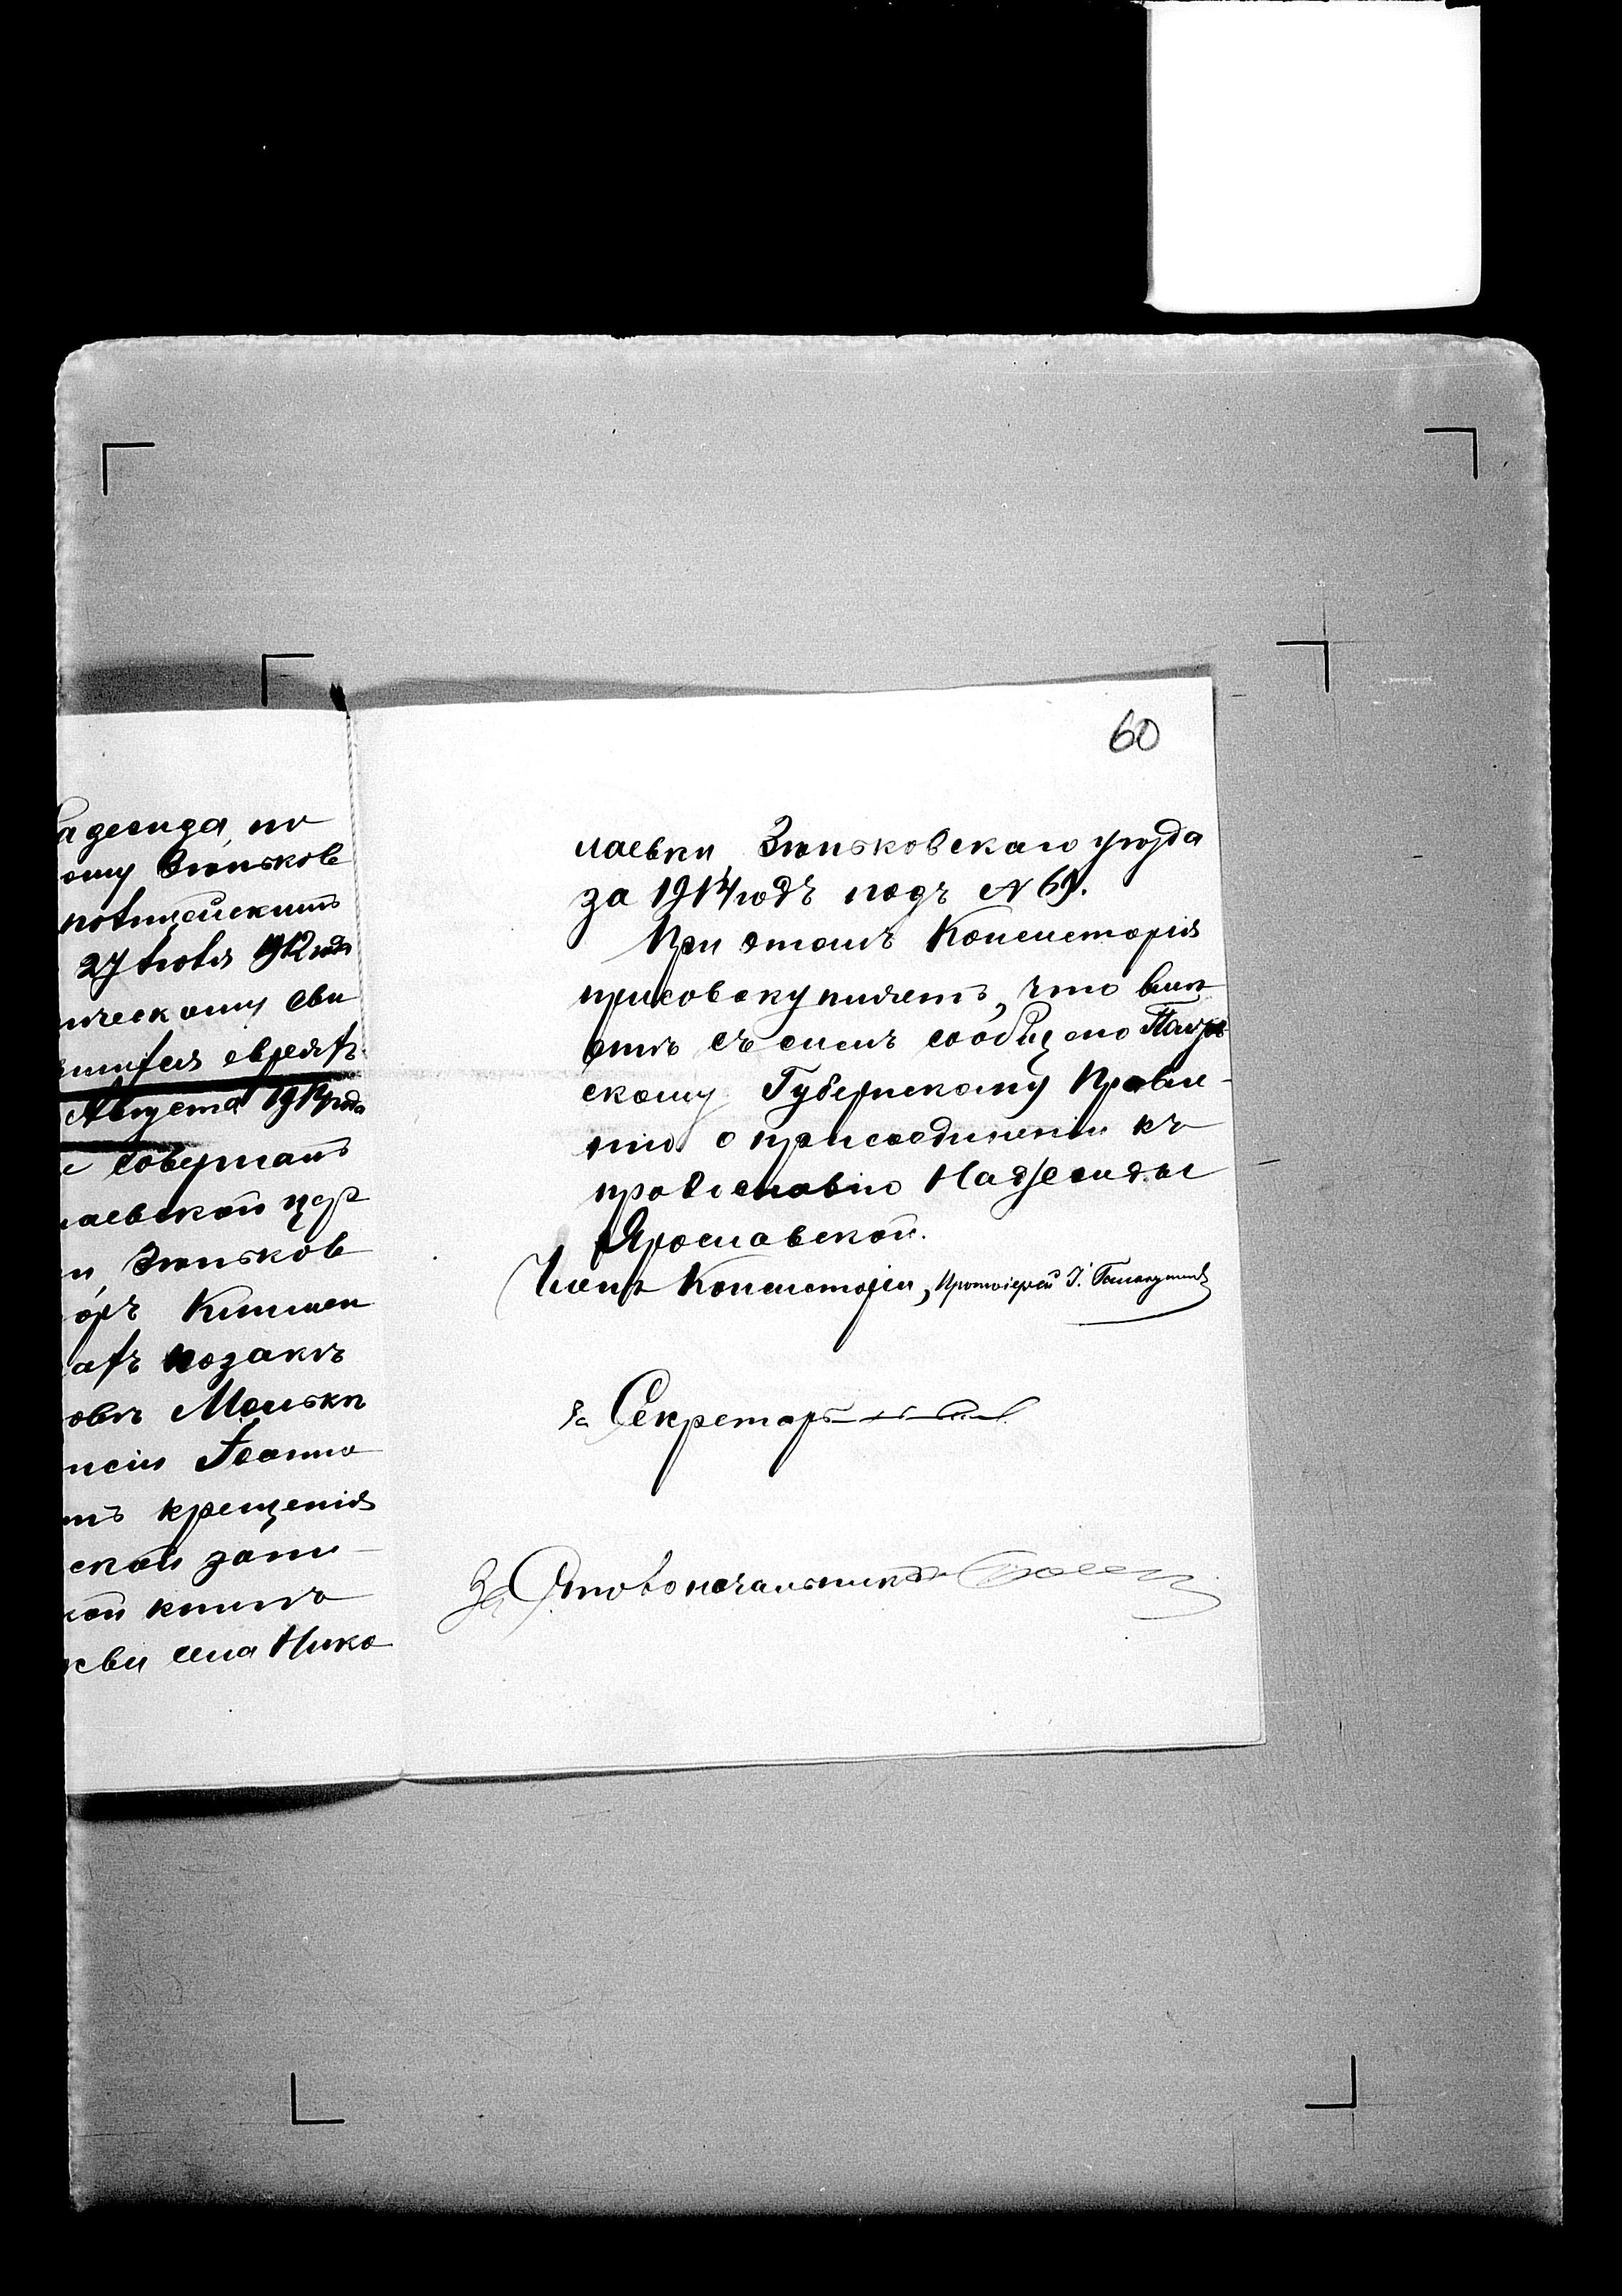 адежда, по
ому Зѣньков
полицейскимъ
27 Іюля 1912 года
ическому сви
еврея
Августа 1914 года
е совершалъ
лаевской цер
и, Зѣньков
оръ Климен
козакъ
овъ Мольки
Іоанно
тъ крещенія
ской запи-
ой книгѣ
кви села Нико
60
лаевки, Зѣньковскаго уѣзда
за 1914 годъ подъ № 69.
При этомъ Консисторія
присовокупляетъ, что вмѣ
стѣ съ симъ сообщено Полтав
скому Губернскому Правле-
нію о присоединеніи къ
православію Надежды
Ярославской.
Членъ Консисторіи, Протоіерей І.
За Секретарь
За Столоначальника